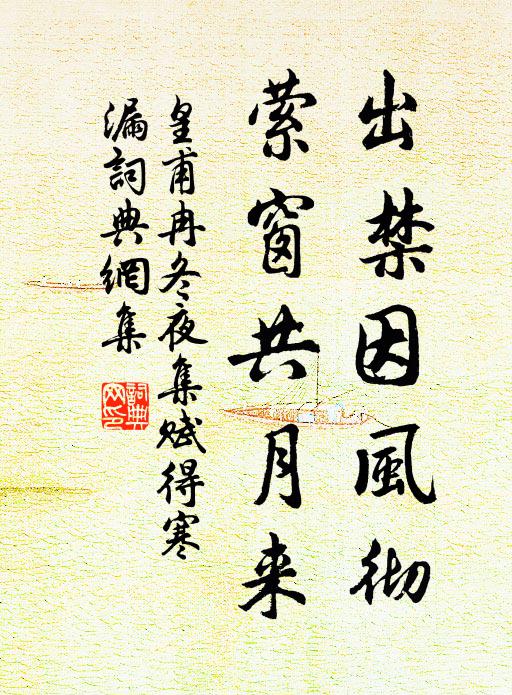 出禁因風彻
萦窗共月来
皇甫冉冬夜集賦得寒
漏詞典網集
詞典
网印